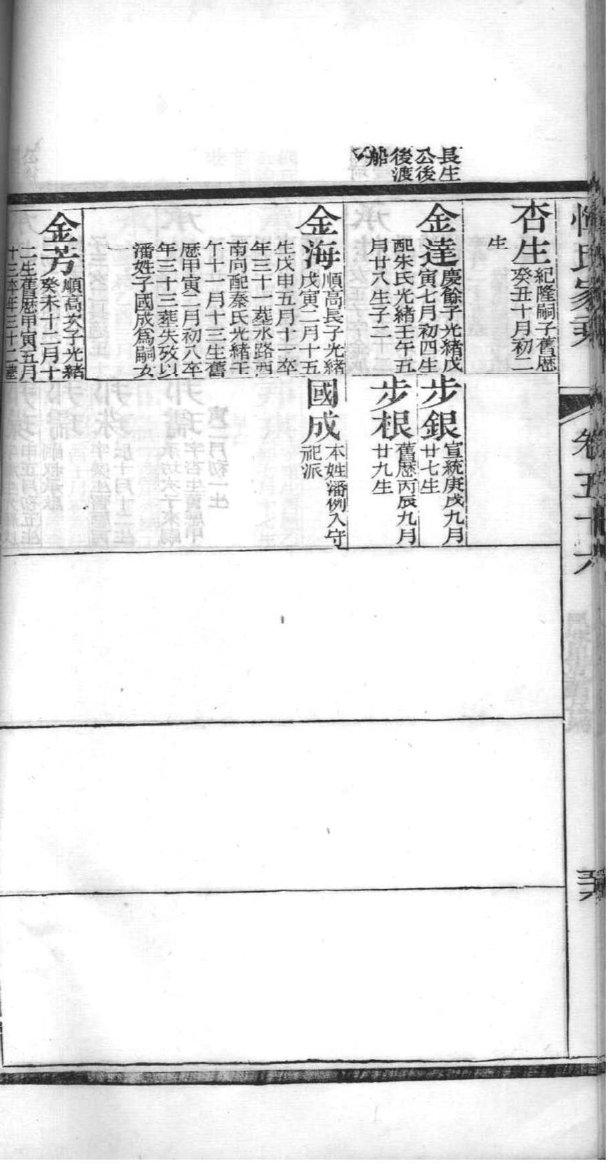 長生
公後
後渡
船
杏生
紀隆嗣子舊歷
癸丑十月初二
生
金達
慶餘子光緒戊
寅七月初四生
配朱氏光緒壬午五
月廿八生子二
金海
順高長子光緒
戊寅二月十五
生戊申五月十二卒
年三十一葬水路西
南向配秦氏光緒壬
午十一月十三生舊
歷甲寅二月初八卒
年三十三葬失攷以
潘姓子國成爲嗣女
金芳
順高次子光緒
癸未十二月十
二生舊歷甲寅五月
十三卒年三十二葬
步銀
宣統庚戌九月
廿七生
步根
舊歷丙辰九月
廿九生
國成
本姓潘例入守
祀派
氏家乘
卷五十六